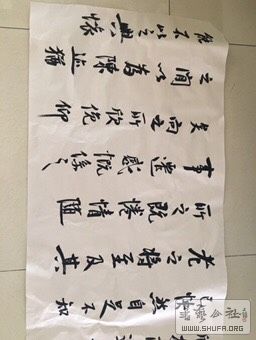 快然自足不知
老之將至及其
所之既惓情隨
事遷感慨係之
矣向之所欣俛仰
之間以為陳迹猶
能不以之興懷
WWW.SHUFA.ORG